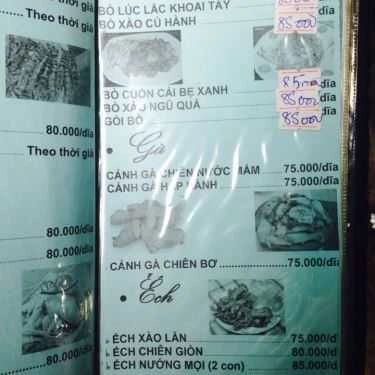 Theo thời giá
80.000/dĩa
Theo thời giá
80.000/dĩa
80.000/dĩa
80.000/dĩa
BÒ LÚC LẮC KHOAI TÂY
BÒ XÀO CỦ HÀNH
85000
BÒ CUỐN CẢI BẸ XANH
BÒ XÀO NGŨ QUẢ
85000
GỎI BÒ
85000
• Gà
CÁNH GÀ CHIÊN NƯỚC MẮM 75.000/dĩa
CÁNH GÀ HẤP HÀNH 75.000/dĩa
CÁNH GÀ CHIÊN BƠ 75.000/dĩa
• Ếch
ẾCH XÀO LĂN 75.000/d
ẾCH CHIÊN GIÒN 80.000/d
ẾCH NƯỚNG MỌI (2 con) 85.000/d